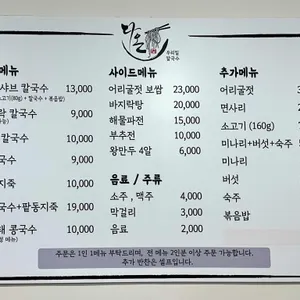 다온
우리밀
칼국수
메뉴
샤브 칼국수 13,000
소고기(80g) + 칼국수 + 볶음밥)
락 칼국수 9,000
칼국수 10,000
국수 9,000
지죽 10,000
국수+팥동지죽 19,000
콩국수 10,000
메뉴)
사이드메뉴
어리굴젓 보쌈 23,000
바지락탕 20,000
해물파전 15,000
부추전 10,000
왕만두 4알 6,000
음료 / 주류
소주 , 맥주 4,000
막걸리 3,000
음료 2,000
추가메뉴
어리굴젓
면사리
소고기 (160g)
미나리+버섯+숙주
미나리
버섯
숙주
볶음밥
주문은 1인 1메뉴 부탁드리며, 전 메뉴 2인분 이상 주문 가능합니다.
추가 반찬은 셀프입니다.